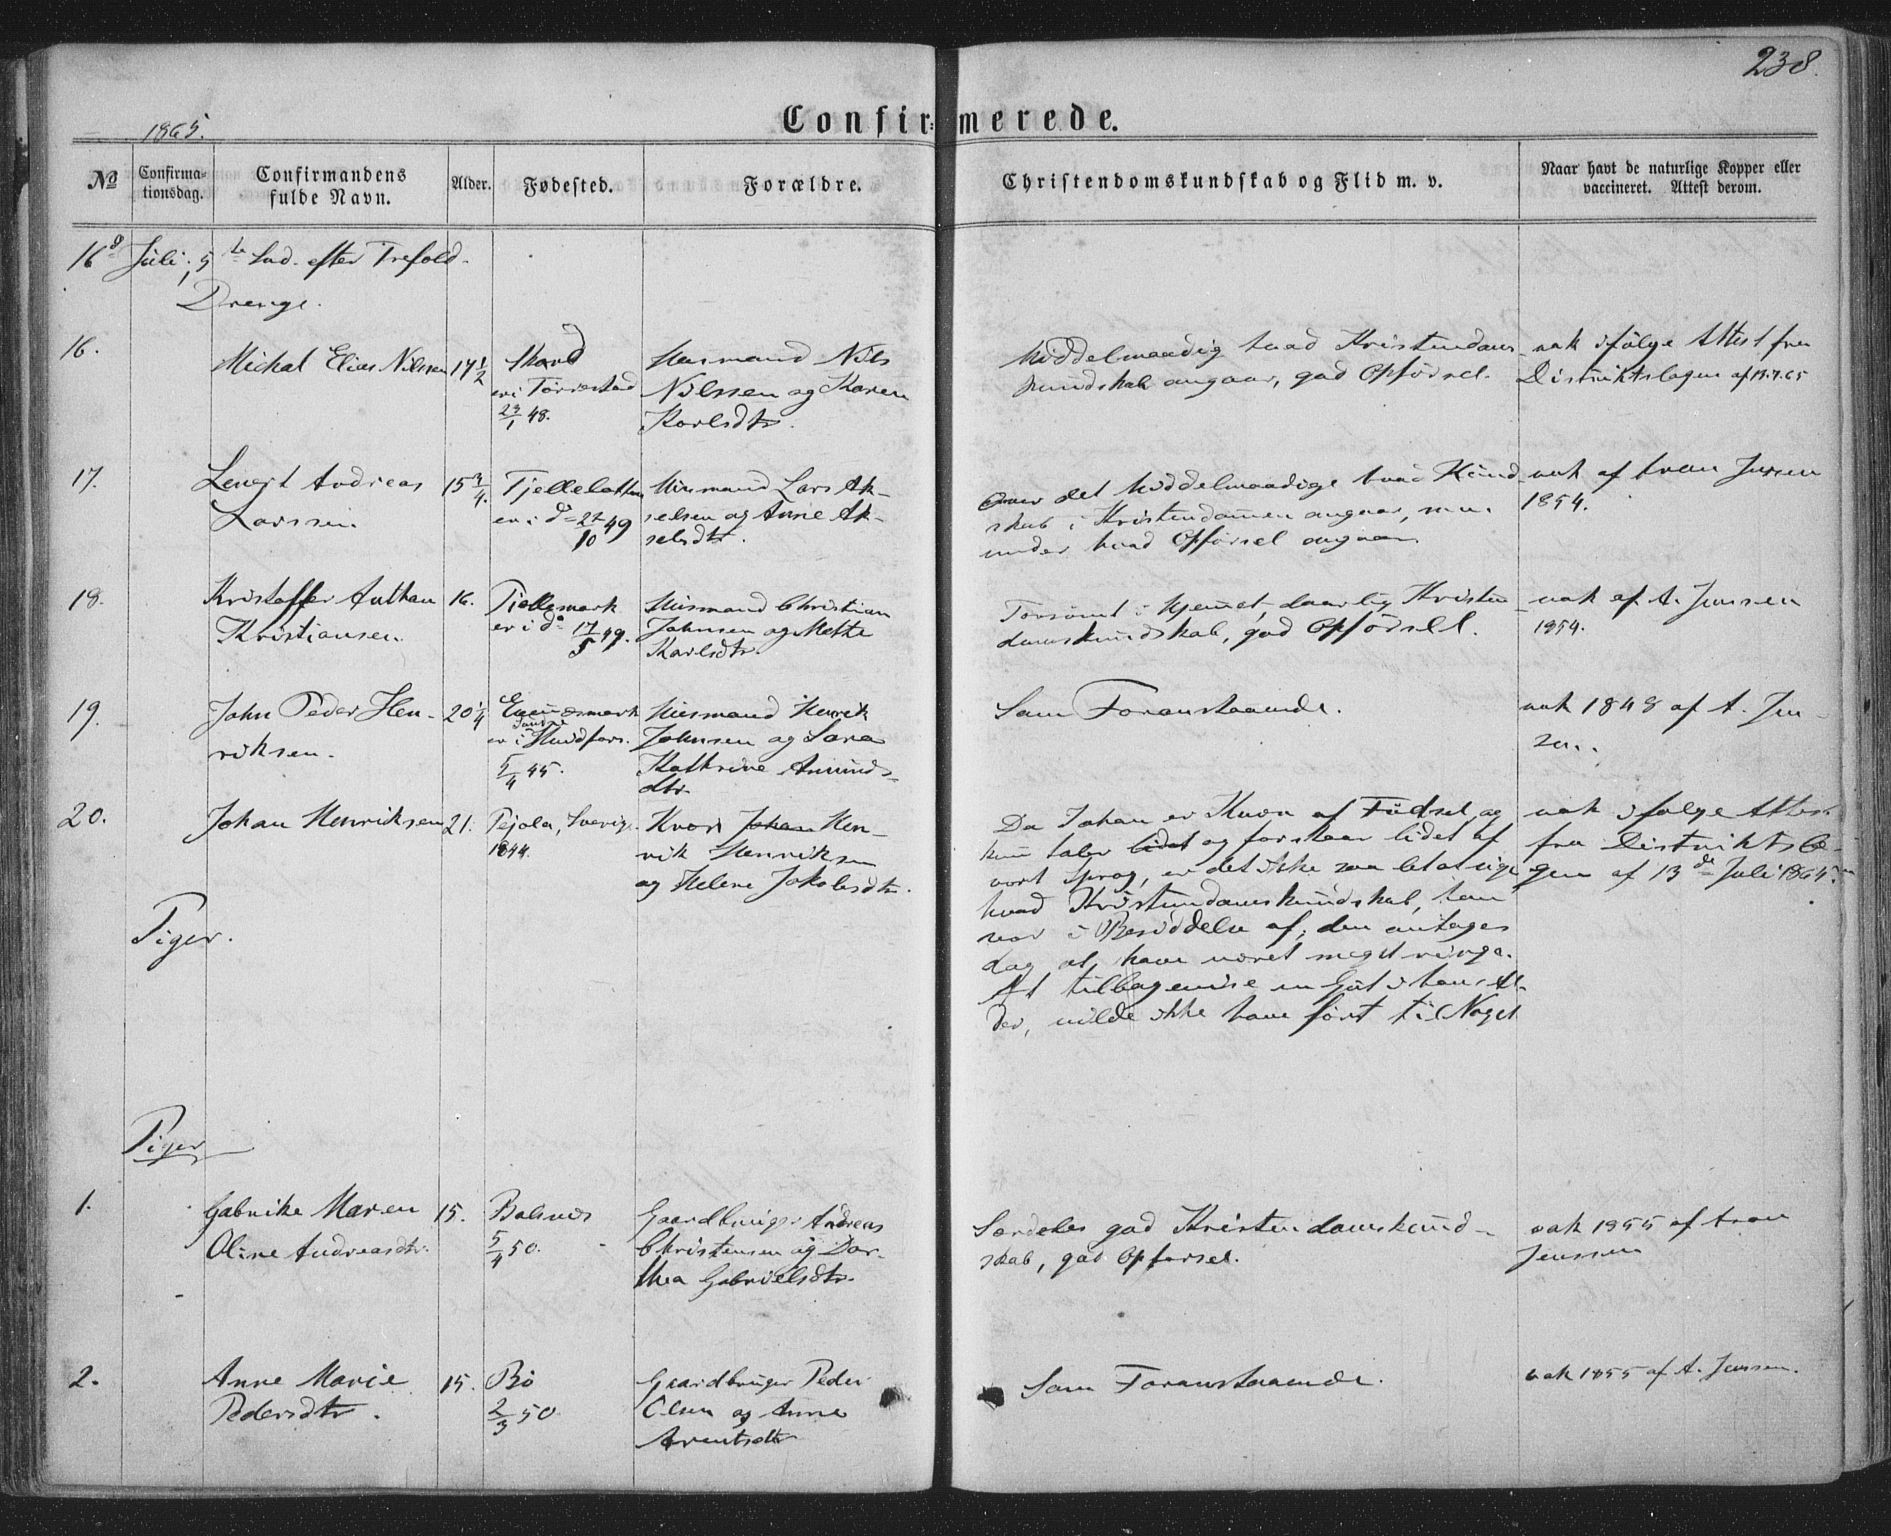 238.
1865.
Confir=merede.
No
Confirma-
tionsdag.
Confirmandens
fulde Navn.
Alder.
Fødested.
Forældre.
Christendomskundskab og Flid m. v.
Naar havt de naturlige Kopper eller
vaccineret. Attest derom.
16 Juli, 5te Sød. efter Trefold.
Drenge.
16.
Mickal Elias Nilssen
17 1/2
23/1 48.
Husmand Nils
Nilssen og Karen
Karlsdtr.
Middelmaadig hvad Kristendoms
kundskab angaar, god Opførsel.
vak ifølge Attest fra
Distriktslægen af 13.7.65
17.
Andreas
Larssen.
15 3/4.
er i do 22/10 49
Husmand Lars Ak-
selsen og Anne Ak-
selsdtr.
Over det Middelmaadige hvad Kund-
skab i Kristendommen angaar,
under hvad Opførsel angaar
vak af Aron Jenssen
1854.
18.
Kristoffer Anthon
Kristiansen.
16.
Tjellemark
er i do 17/5 49.
Husmand Christian
Johnsen og Mette
Karlsdtr.
Forsømt i Hjemmet, daarlig Kristen
domskundskab, god Opførsel.
vak af A. Jenssen
1854.
19.
John Peder Hen-
riksen.
20 1/4
Evenesmark
5/4 45.
Husmand Henrik
Johnsen og Sara
Kathrine Amunds-
dtr.
Som Foranstaaende.
vak 1848 af A. Jen-
sen.
20.
Johan Henriksen
21.
Pejola, Sverige
1844.
Kvæn Johan Hen-
rik Henriksen
og Helene Jakobsdtr.
Da Johan er Kvæn af Fødsel og
kun taler lidet og forstaar lidet af
vort Sprog, er det ikke saa let at sige
hvad Kristendomskundskab, han
var i Besiddelse af; den antages
dog at have været meget ringe.
At tilbagevise en Gut i hans Al-
der, vilde ikke have ført til Noget
vak ifølge Attest
fra Distriktslæ-
gen af 13de Juli 1865.
Piger.
Piger
1.
Gabrike Maren
Oline Andreasdtr.
15.
Balsnes
5/4 50.
Gaardbruger Andreas
Christensen og Dor-
thea Gabrielsdtr.
Særdeles god Kristendomskund-
skab, god Opførsel.
vak 1855 af Aron
Jenssen
2.
Anne Marie
Pedersdtr.
15.
Bø
2/3 50
Gaardbruger Peder
Olsen og Anne
Arentsdtr
Som Foranstaaende.
vak 1855 af A. Jenssen.